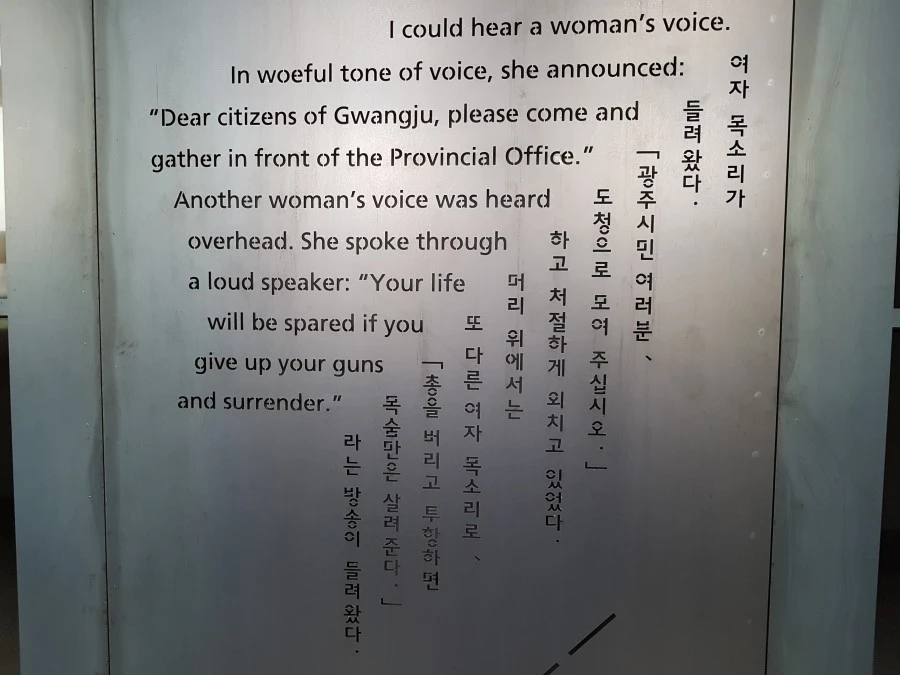 I could hear a woman's voice.
In woeful tone of voice, she announced:
"Dear citizens of Gwangju, please come and
gather in front of the Provincial Office."
Another woman's voice was heard
overhead. She spoke through
a loud speaker: "Your life
will be spared if you
give up your guns
and surrender."
여자 목소리가
들려 왔다.
「광주시민 여러분、
도청으로 모여 주십시오.」
하고 처절하게 외치고 있었다.
머리 위에서는
또 다른 여자 목소리로、
「총을 버리고 투항하면
목숨만은 살려준다.」
라는 방송이 들려 왔다.